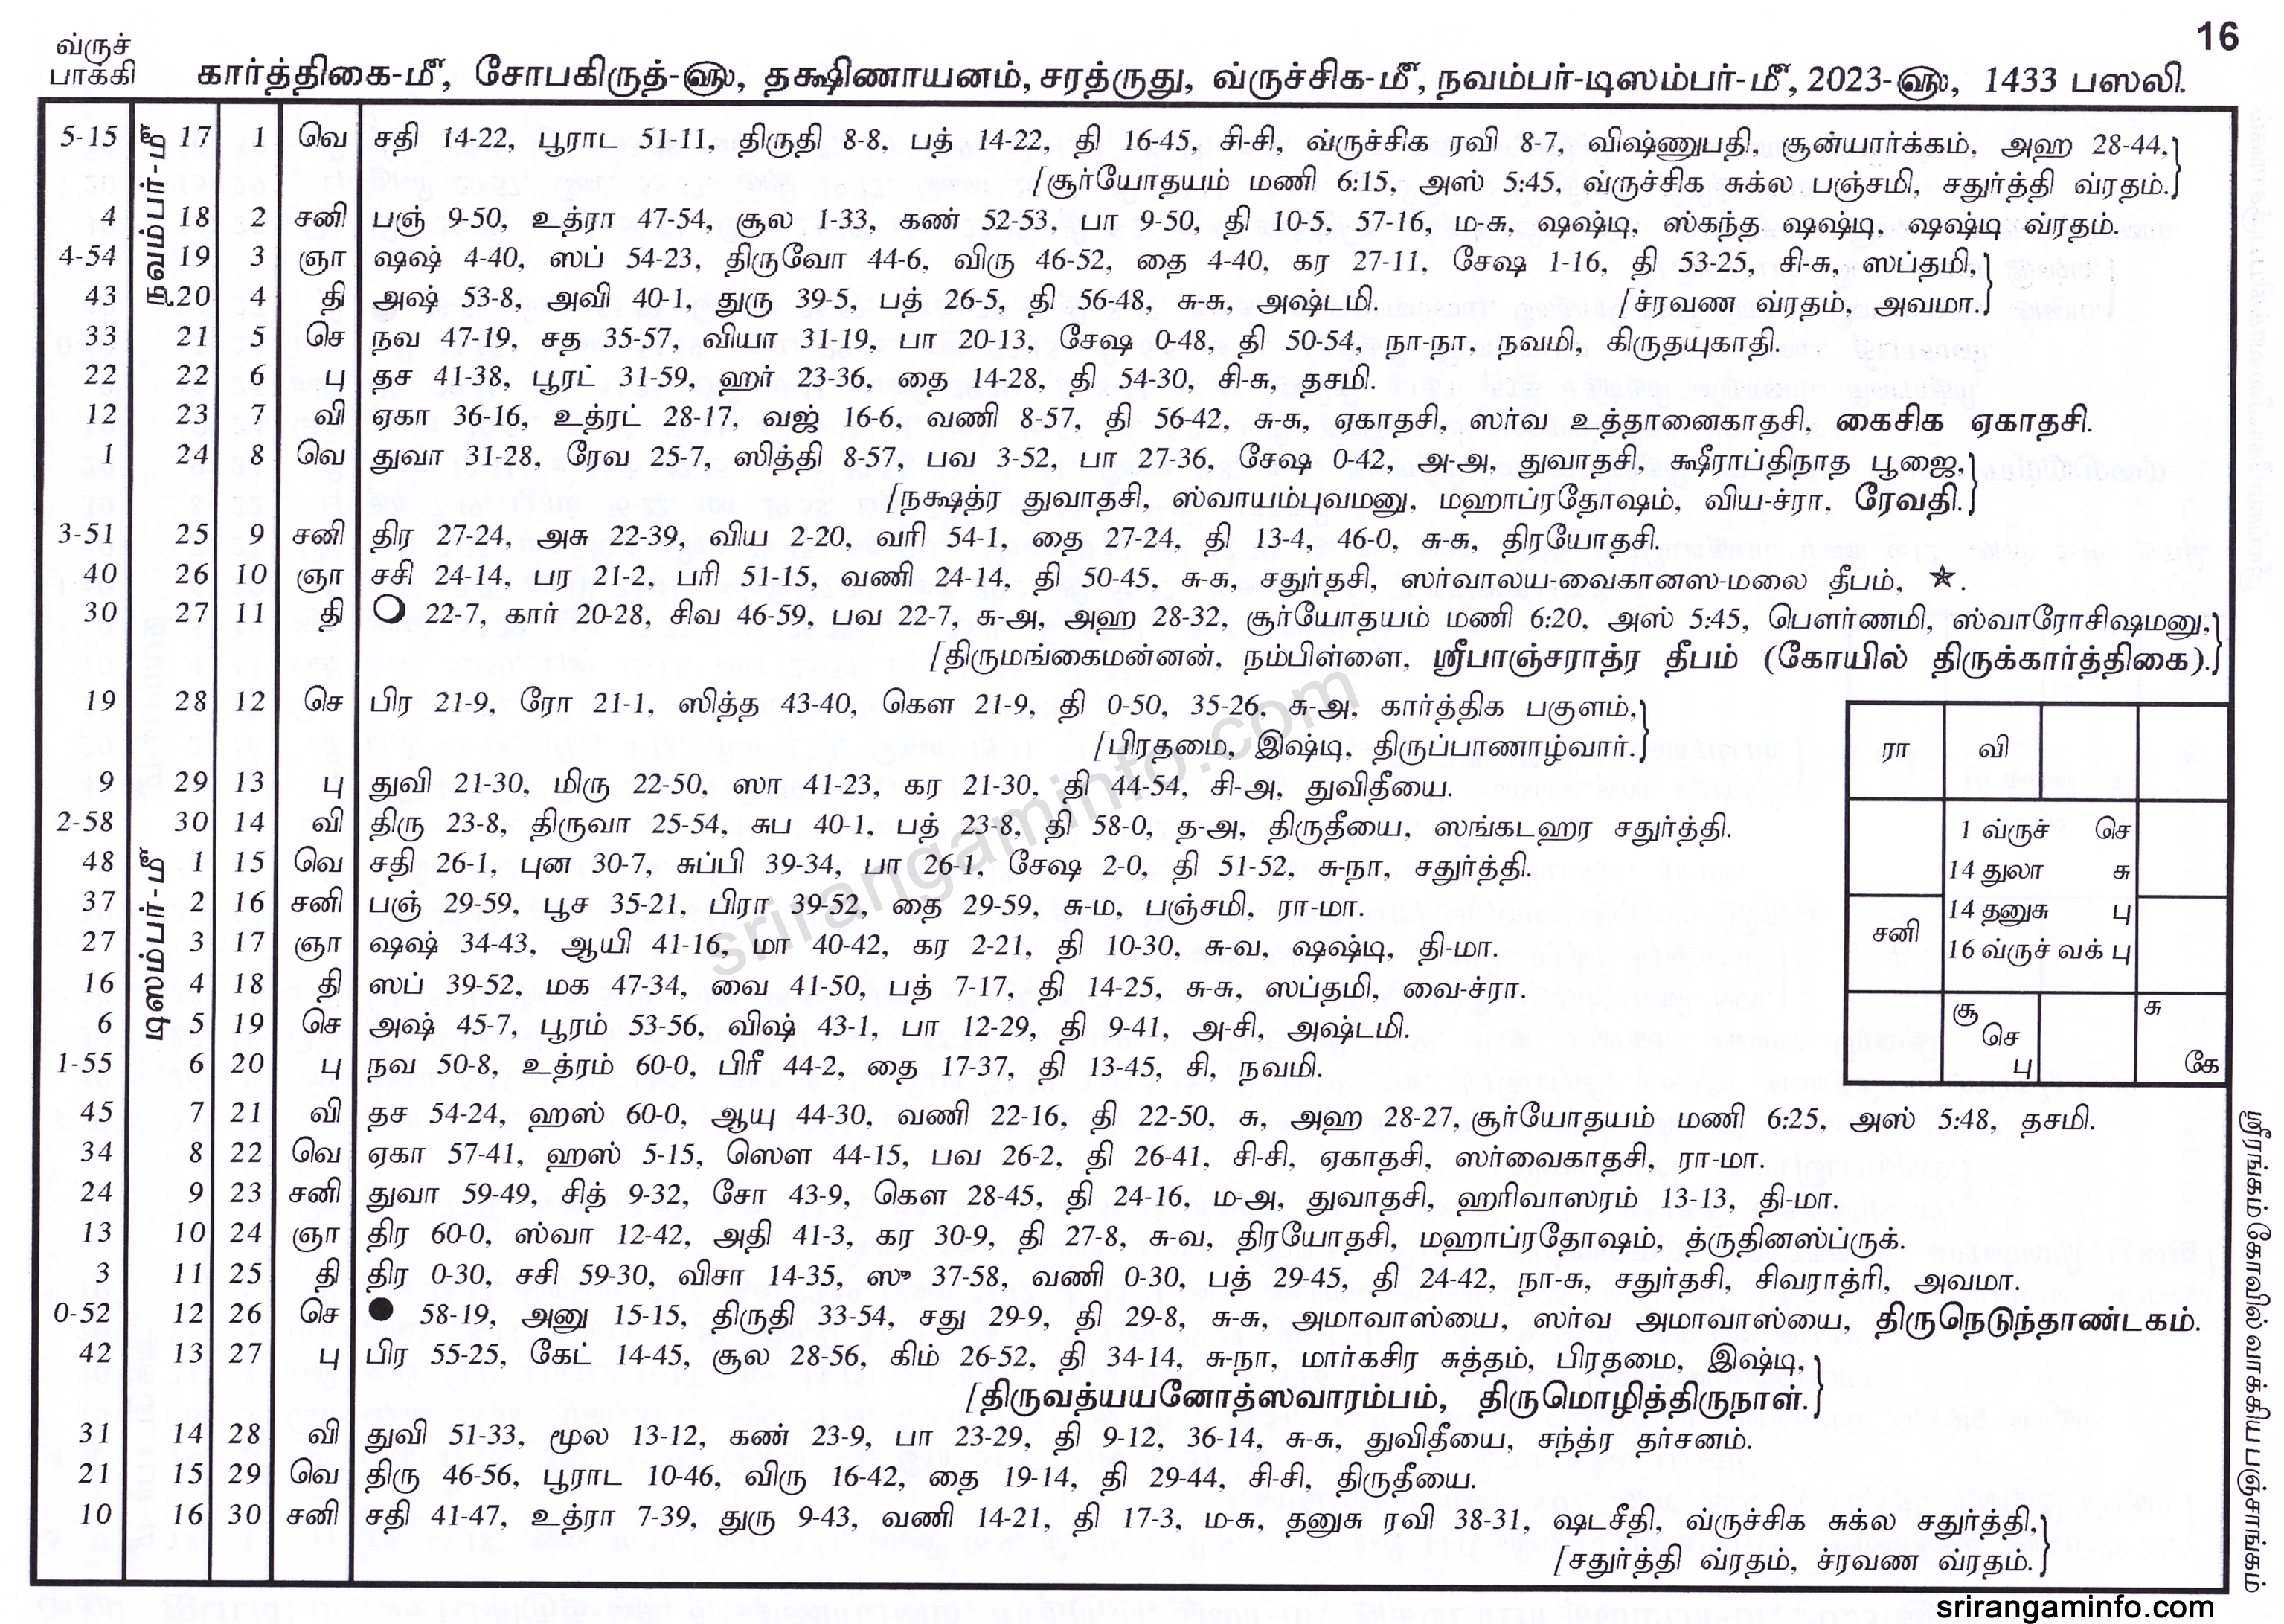 16
வ்ருச்
பாக்கி
கார்த்திகை-மீ, சோபகிருத்-௵, தக்ஷிணாயனம், சரத்ருது, வ்ருச்சிக-மீ, நவம்பர்-டிஸம்பர்-மீ, 2023-௵, 1433 பஸலி.
நவம்பர்-மீ
5-15 17 1 வெ சதி 14-22, பூராட 51-11, திருதி 8-8, பத் 14-22, தி 16-45, சி-சி, வ்ருச்சிக ரவி 8-7, விஷ்ணுபதி, சூன்யார்க்கம், அஹ 28-44,}
[சூர்யோதயம் மணி 6:15, அஸ் 5:45, வ்ருச்சிக சுக்ல பஞ்சமி, சதுர்த்தி வ்ரதம்.}
4 18 2 சனி பஞ் 9-50, உத்ரா 47-54, சூல 1-33, கண் 52-53, பா 9-50, தி 10-5, 57-16, ம-சு, ஷஷ்டி, ஸ்கந்த ஷஷ்டி, ஷஷ்டி வ்ரதம்.
4-54 19 3 ஞா ஷஷ் 4-40, ஸப் 54-23, திருவோ 44-6, விரு 46-52, தை 4-40, கர 27-11, சேஷ 1-16, தி 53-25, சி-சு, ஸப்தமி,}
43 20 4 தி அஷ் 53-8, அவி 40-1, துரு 39-5, பத் 26-5, தி 56-48, சு-சு, அஷ்டமி. [ச்ரவண வ்ரதம், அவமா.}
33 21 5 செ நவ 47-19, சத 35-57, வியா 31-19, பா 20-13, சேஷ 0-48, தி 50-54, நா-நா, நவமி, கிருதயுகாதி.
22 22 6 பு தச 41-38, பூரட் 31-59, ஹர் 23-36, தை 14-28, தி 54-30, சி-சு, தசமி.
12 23 7 வி ஏகா 36-16, உத்ரட் 28-17, வஜ் 16-6, வணி 8-57, தி 56-42, சு-சு, ஏகாதசி, ஸர்வ உத்தானைகாதசி, கைசிக ஏகாதசி.
1 24 8 வெ துவா 31-28, ரேவ 25-7, ஸித்தி 8-57, பவ 3-52, பா 27-36, சேஷ 0-42, அ-அ, துவாதசி, க்ஷீராப்திநாத பூஜை,}
[நக்ஷத்ர துவாதசி, ஸ்வாயம்புவமனு, மஹாப்ரதோஷம், விய-ச்ரா, ரேவதி.}
3-51 25 9 சனி திர 27-24, அசு 22-39, விய 2-20, வரி 54-1, தை 27-24, தி 13-4, 46-0, சு-சு, திரயோதசி.
40 26 10 ஞா சசி 24-14, பர 21-2, பரி 51-15, வணி 24-14, தி 50-45, சு-சு, சதுர்தசி, ஸர்வாலய-வைகானஸ-மலை தீபம், ☆.
30 27 11 தி ○ 22-7, கார் 20-28, சிவ 46-59, பவ 22-7, சு-அ, அஹ 28-32, சூர்யோதயம் மணி 6:20, அஸ் 5:45, பௌர்ணமி, ஸ்வாரோசிஷமனு,}
[திருமங்கைமன்னன், நம்பிள்ளை, ஸ்ரீபாஞ்சராத்ர தீபம் (கோயில் திருக்கார்த்திகை).}
19 28 12 செ பிர 21-9, ரோ 21-1, ஸித்த 43-40, கௌ 21-9, தி 0-50, 35-26, சு-அ, கார்த்திக பகுளம்,}
[பிரதமை, இஷ்டி, திருப்பாணாழ்வார்.}
9 29 13 பு துவி 21-30, மிரு 22-50, ஸா 41-23, கர 21-30, தி 44-54, சி-அ, துவிதீயை.
2-58 30 14 வி திரு 23-8, திருவா 25-54, சுப 40-1, பத் 23-8, தி 58-0, த-அ, திருதீயை, ஸங்கடஹர சதுர்த்தி.
டிஸம்பர்-மீ
48 1 15 வெ சதி 26-1, புன 30-7, சுப்பி 39-34, பா 26-1, சேஷ 2-0, தி 51-52, சு-நா, சதுர்த்தி.
37 2 16 சனி பஞ் 29-59, பூச 35-21, பிரா 39-52, தை 29-59, சு-ம, பஞ்சமி, ரா-மா.
27 3 17 ஞா ஷஷ் 34-43, ஆயி 41-16, மா 40-42, கர 2-21, தி 10-30, சு-வ, ஷஷ்டி, தி-மா.
16 4 18 தி ஸப் 39-52, மக 47-34, வை 41-50, பத் 7-17, தி 14-25, சு-சு, ஸப்தமி, வை-ச்ரா.
6 5 19 செ அஷ் 45-7, பூரம் 53-56, விஷ் 43-1, பா 12-29, தி 9-41, அ-சி, அஷ்டமி.
1-55 6 20 பு நவ 50-8, உத்ரம் 60-0, பிரீ 44-2, தை 17-37, தி 13-45, சி, நவமி.
ரா வி
1 வ்ருச் செ
14 துலா சு
14 தனுசு பு
சனி
16 வ்ருச் வக் பு
சூ
செ
பு
சு
கே
45 7 21 வி தச 54-24, ஹஸ் 60-0, ஆயு 44-30, வணி 22-16, தி 22-50, சு, அஹ 28-27, சூர்யோதயம் மணி 6:25, அஸ் 5:48, தசமி.
34 8 22 வெ ஏகா 57-41, ஹஸ் 5-15, ஸௌ 44-15, பவ 26-2, தி 26-41, சி-சி, ஏகாதசி, ஸர்வைகாதசி, ரா-மா.
24 9 23 சனி துவா 59-49, சித் 9-32, சோ 43-9, கௌ 28-45, தி 24-16, ம-அ, துவாதசி, ஹரிவாஸரம் 13-13, தி-மா.
13 10 24 ஞா திர 60-0, ஸ்வா 12-42, அதி 41-3, கர 30-9, தி 27-8, சு-வ, திரயோதசி, மஹாப்ரதோஷம், த்ருதினஸ்ப்ருக்.
3 11 25 தி திர 0-30, சசி 59-30, விசா 14-35, ஸு 37-58, வணி 0-30, பத் 29-45, தி 24-42, நா-சு, சதுர்தசி, சிவராத்ரி, அவமா.
0-52 12 26 செ ● 58-19, அனு 15-15, திருதி 33-54, சது 29-9, தி 29-8, சு-சு, அமாவாஸ்யை, ஸர்வ அமாவாஸ்யை, திருநெடுந்தாண்டகம்.
42 13 27 பு பிர 55-25, கேட் 14-45, சூல 28-56, கிம் 26-52, தி 34-14, சு-நா, மார்கசிர சுத்தம், பிரதமை, இஷ்டி,}
[திருவத்யயனோத்ஸவாரம்பம், திருமொழித்திருநாள்.}
31 14 28 வி துவி 51-33, மூல 13-12, கண் 23-9, பா 23-29, தி 9-12, 36-14, சு-சு, துவிதீயை, சந்த்ர தர்சனம்.
21 15 29 வெ திரு 46-56, பூராட 10-46, விரு 16-42, தை 19-14, தி 29-44, சி-சி, திருதீயை.
10 16 30 சனி சதி 41-47, உத்ரா 7-39, துரு 9-43, வணி 14-21, தி 17-3, ம-சு, தனுசு ரவி 38-31, ஷடசீதி, வ்ருச்சிக சுக்ல சதுர்த்தி,}
[சதுர்த்தி வ்ரதம், ச்ரவண வ்ரதம்.}
ஸ்ரீரங்கம் கோவில் வாக்கிய பஞ்சாங்கம்
srirangaminfo.com
srirangaminfo.com